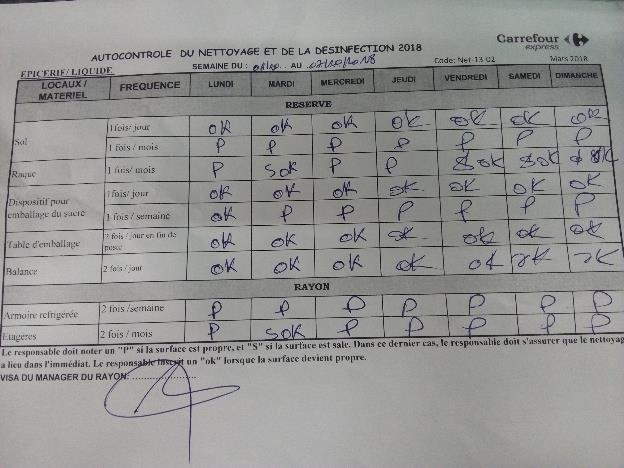 Carrefour
express
AUTOCONTROLE DU NETTOYAGE ET DE LA DESINFECTION 2018
EPICERIE/ LIQUIDE SEMAINE DU : AU 07/10/2018 Code: Net-13-02 Mars 2018
LOCAUX / MATERIEL FREQUENCE LUNDI MARDI MERCREDI JEUDI VENDREDI SAMEDI DIMANCHE
RESERVE
Sol 1fois/ jour OK OK OK OK OK OK
1 fois / mois P P P P P P P
Raque 1 fois/ mois P SOK P P SOK SOK
Dispositif pour emballage du sucre 1fois/ jour OK OK OK OK OK OK OK
1 fois / semaine OK P P P P P P
Table d'emballage 2 fois / jour en fin de poste OK OK OK OK OK OK OK
Balance 2 fois / jour OK OK OK OK OK OK OK
RAYON
Armoire refrigérée 2 fois /semaine P P P P P P P
Etagères 2 fois / mois P SOK P P P P P
Le responsable doit noter un "P" si la surface est propre, et "S" si la surface est sale. Dans ce dernier cas, le responsable doit s'assurer que le nettoyag
a lieu dans l'immédiat. Le responsable inscrit un "ok" lorsque la surface devient propre.
VISA DU MANAGER DU RAYON: ....................